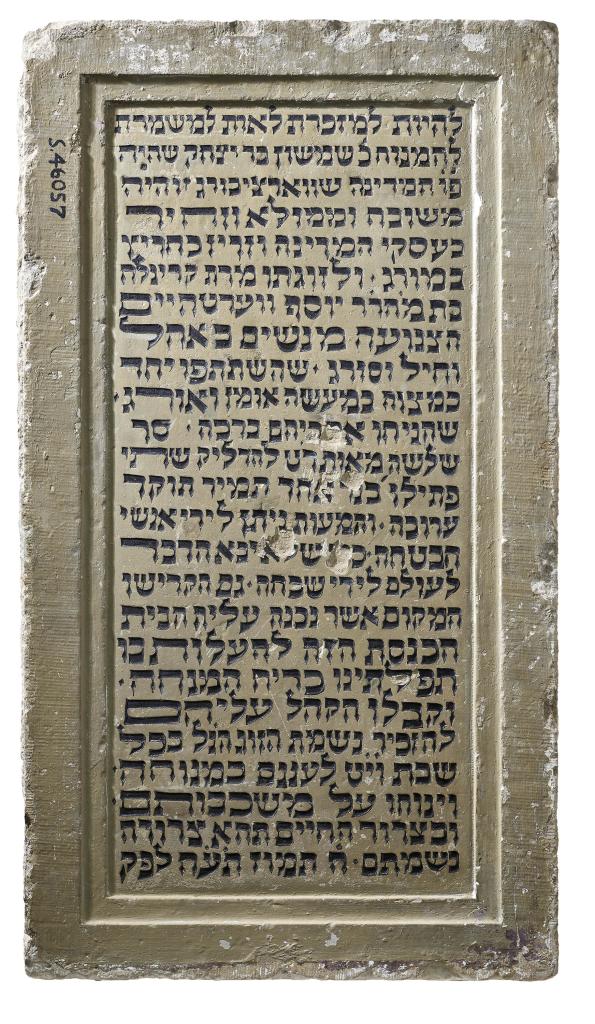 להיות למזכרת לאות למשמרת
להמנוח כ שמשון בר יצחק שהיה
פו המדינה שווארציבורג ויהיה
משובח וממולא וזהיר
בעסקי המדינה וזריז כחריץ
במורג ולזוגתו מרת קריינלה
בת מהרר יוסף ווערטהיים
הצנועה מנשים באהל
וחיל וסורג שהשתתפו יחד
במצוה כמעשה אומן ואורג
שהניחו אחריהם ברכה סך
שלשה מאות רט להדליק שתי
פתילן בנר אחד תמיד תוקד
ערוכה והמעות ניתן לידי אנשי
הבטחה איכא הדבר
לעולם לידי שכחה גם הקדישו
המקום אשר נבנה עליה הבית
הכנסת הזה להעלות בו
תפלתינו כריח המנחה
וקבלו הקהל עליהם
להזכיר נשמת הזוג הנל בכל
שבת ויט לעננם במנוחה
וינוחו על משכבותם
ובצרור החיים תהא צרורה
נשמתם ח תמוז תעח לפק
S46057